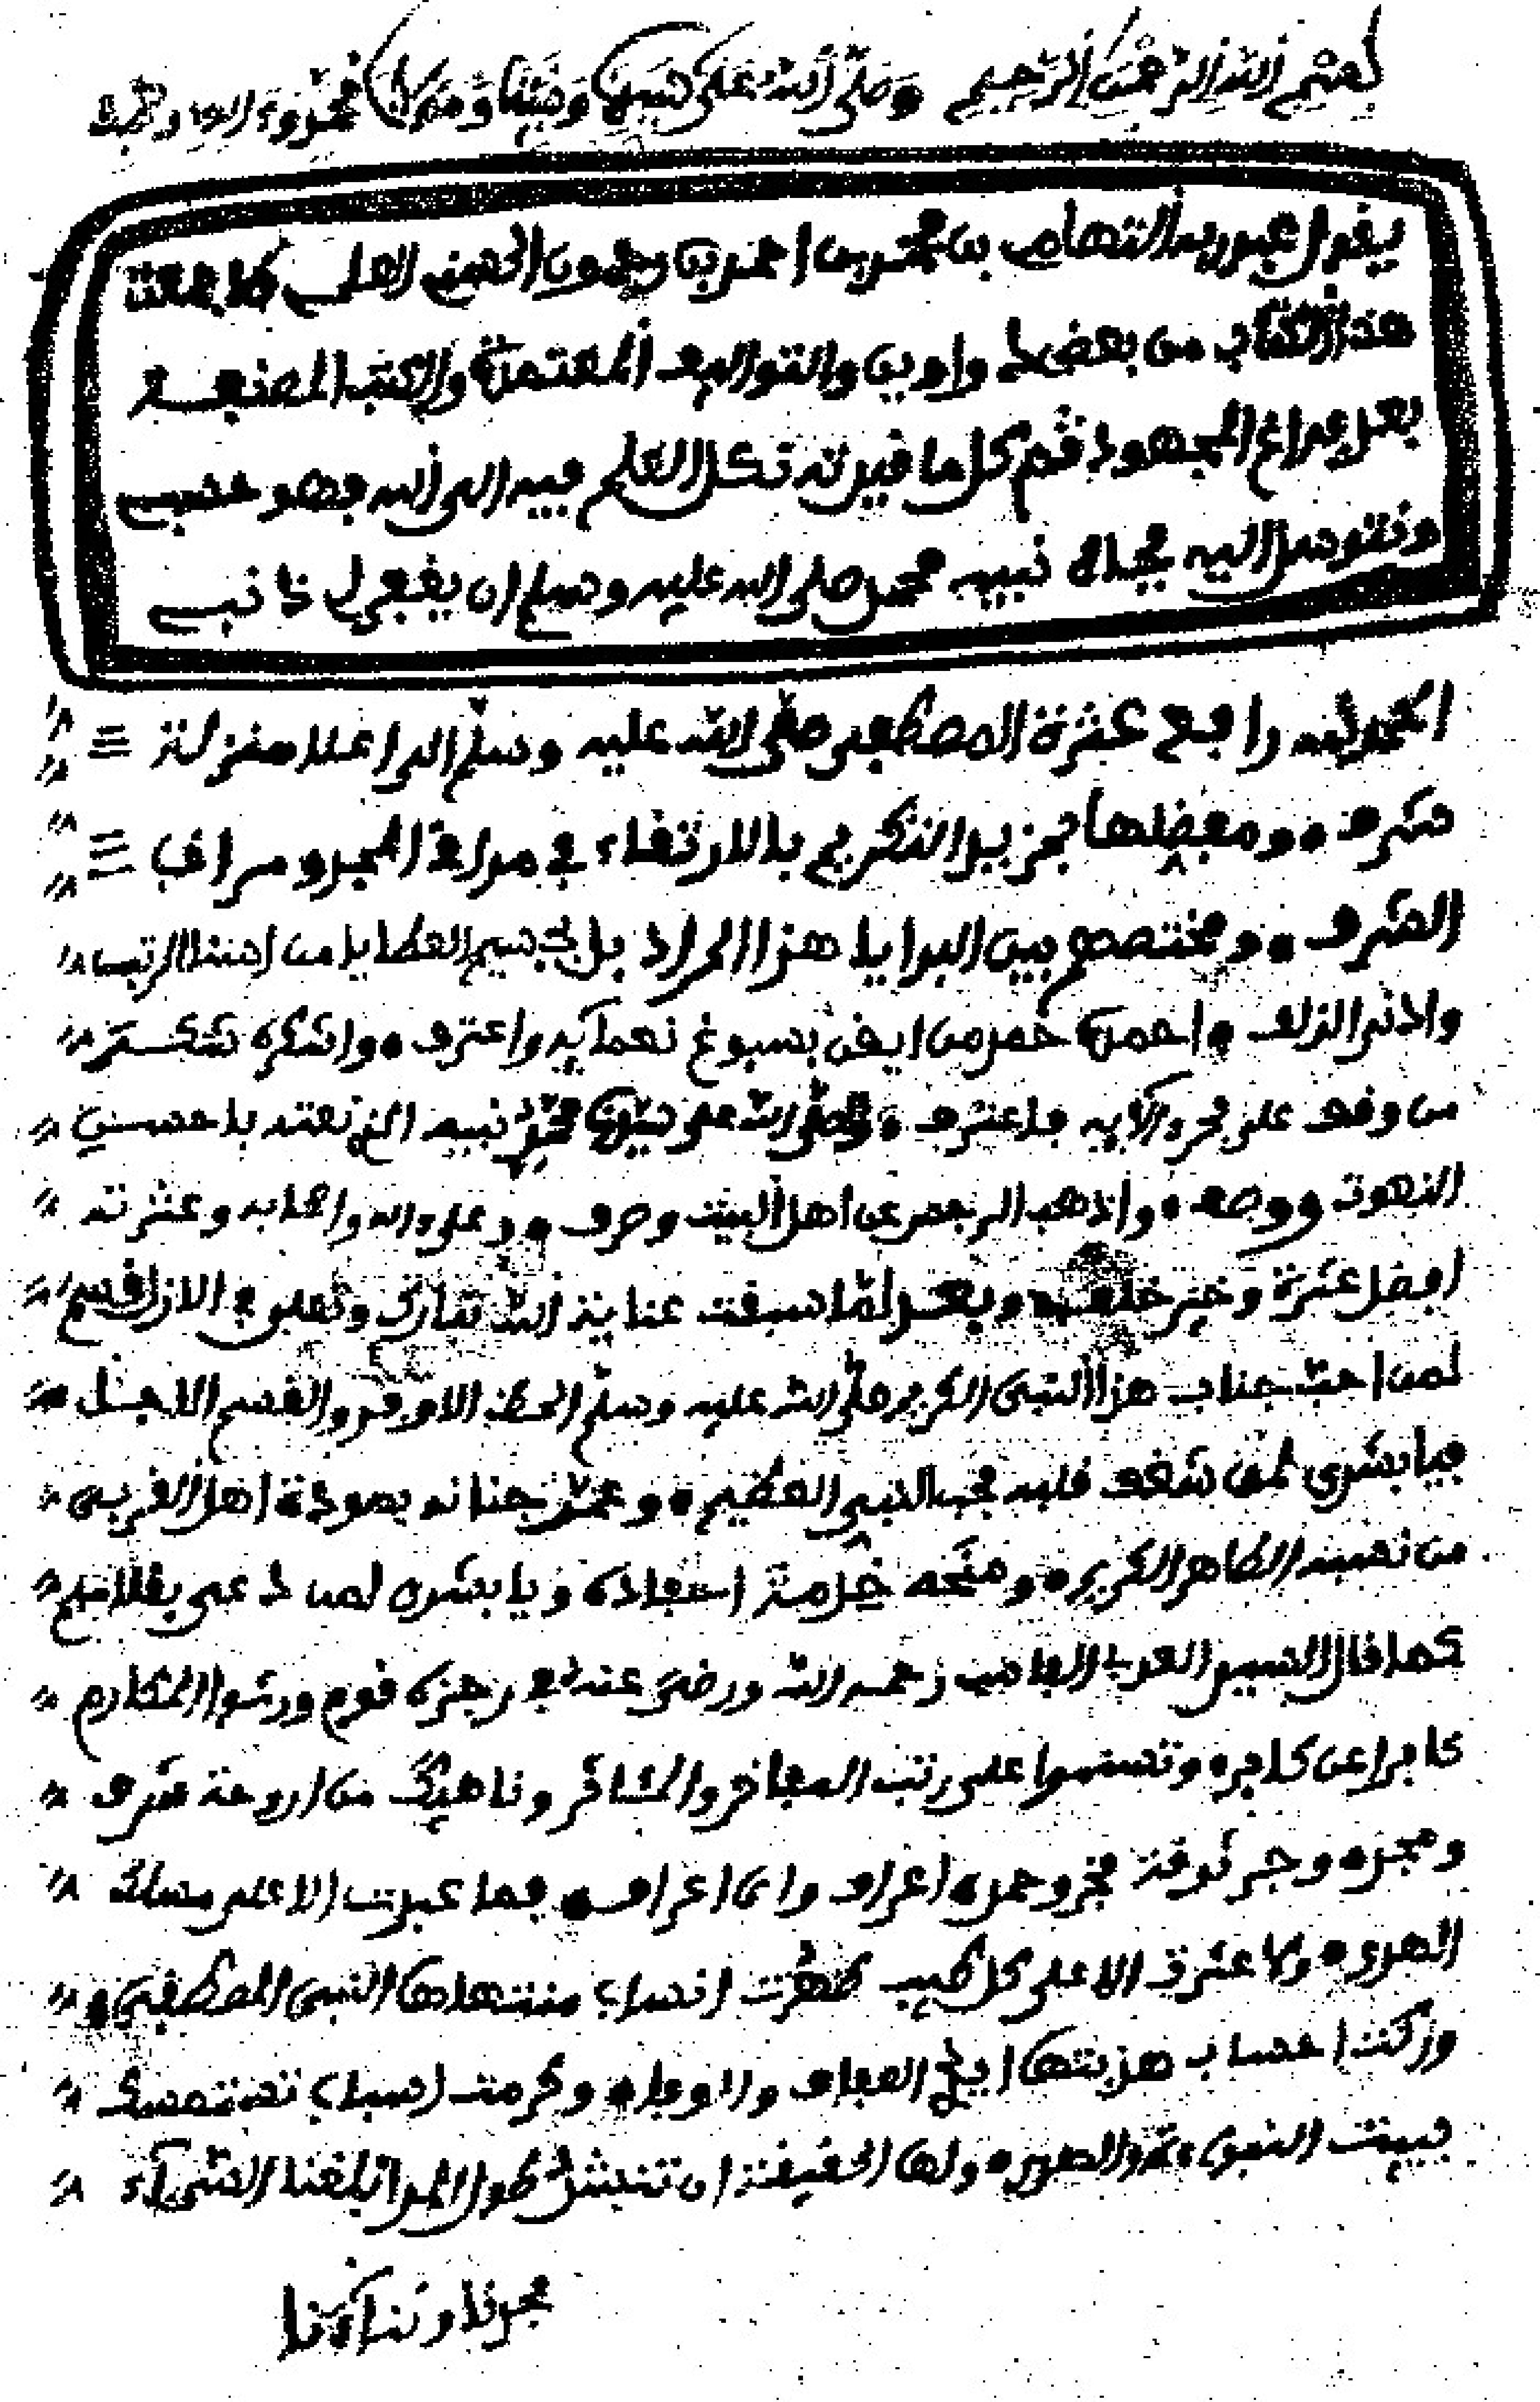 بسم الله الرحمن الرحيم وصلى الله على سيدنا ونبينا ومولانا محمد وءاله وصحبه
يقول عبد ربه التهامي بن محمد بن احمد بن رحمون الحسني العلمي لما جمعت
هذا الكتاب من بعض دواوين والتواليف المعتمدة والكتب المصنفة
بعد فراغ المجهود فيه كل ما قيدته نكل العلم فيه الى الله فهو حسبي
ونتوسل اليه بجاه نبيه محمد صلى الله عليه وسلم ان يغفر لي ذانبي
الحمد لله رافع عترة المصطفى صلى الله عليه وسلم الى اعلا منزلة
شرف ومفضلها بمزيد التكريم بالارتقاء في مدارج المجد ومراقي
الشرف ومختصهم بين البرايا هذا المراد بل بجسيم العطايا من اسنا الرتب
وادنى الزلف احمده حمد من ايقن بسبوغ نعمآيه واعترف واشكره شكر
من وقف على بحر آلايه فاغترف والصلى الله على سيدنا محمد نبيه الذي نعته باحسن
النعوت ووصف واذهب الرجس عن اهل البيت وصرف وعلى ءاله واصحابه وعترته
افضل عترة وخير خلف وبعد لما سبقت عناية الله تبارك وتعلى في الازل قسم
لمن احب جناب هذا النبي الكريم صلى الله عليه وسلم الحظ الاوفر والقسم الاجزل
فيا بشرى لمن شغف قلبه بحب النبي العظيم وعمر جنانه بمودة اهل القربى
من نسبه الطاهر الكريم ومنحه خدمة اسياده ويا بشرى لمن دعى بغلامهم
كما قال السيد العربي الفاسي رحمه الله ورضى عنه في رجزه قوم ورثوا المكارم
كابرا عن كابر وتسنموا على رتب المفاخر والمئاثر وناهيك من ارومة شرف
ومجد وجرثومة فخر وحمد اعراف واي اعراف فما عبرت الا على مسلك
الهدى ولا عترة الا على كل طيب طهرت انساب منتهاها النبي المصطفى
وزكت احساب هزبتها ايدي العفاف والوفا وكرمت اسباب تستمسك
ببيت النبوءة والصهر ولها الحقيقة ان تنشد طول المدا بلغنا السمآء
مجدنا وثنآؤنا